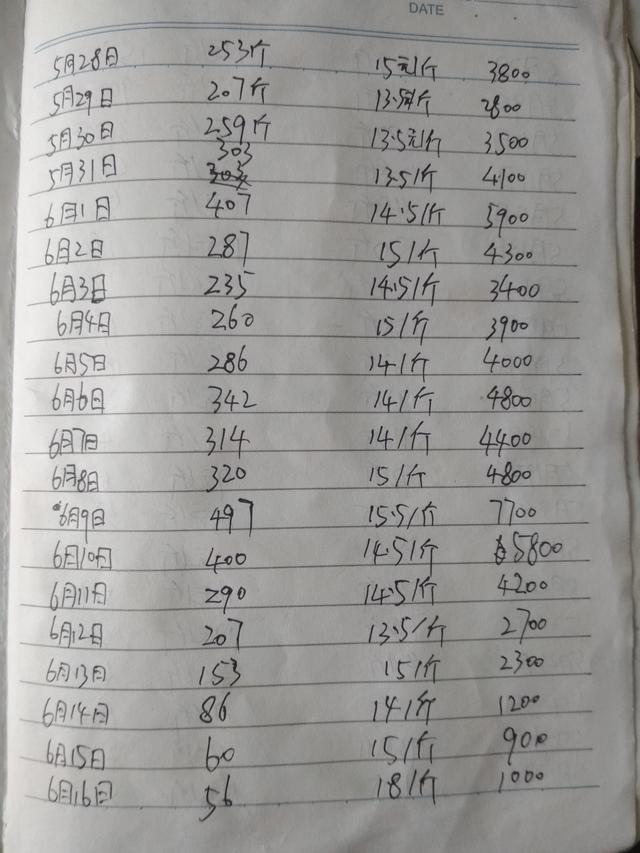 DATE
5月28日 253斤 15元/斤 3800
5月29日 207斤 13.5元/斤 2800
5月30日 259斤 13.5元/斤 3500
5月31日 303 13.5/斤 4100
6月1日 407 14.5/斤 5900
6月2日 287 15/斤 4300
6月3日 235 14.5/斤 3400
6月4日 260 15/斤 3900
6月5日 286 14/斤 4000
6月6日 342 14/斤 4800
6月7日 314 14/斤 4400
6月8日 320 15/斤 4800
6月9日 497 15.5/斤 7700
6月10日 400 14.5/斤 5800
6月11日 290 14.5/斤 4200
6月12日 207 13.5/斤 2700
6月13日 153 15/斤 2300
6月14日 86 14/斤 1200
6月15日 60 15/斤 900
6月16日 56 18/斤 1000